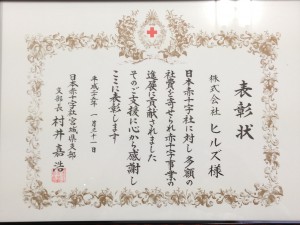 表彰状
株式会社 ヒルズ様
日本赤十字社に対し多額の
社費を寄せられ赤十字事業の
進展に貢献されました
そのご支援に心から感謝し
ここに表彰します
平成二十九年一月三十一日
日本赤十字社宮城県支部
支部長 村井嘉浩